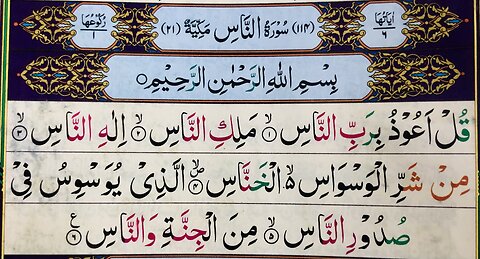 اٰيَاتُهَا ٦ (١١٤) سُوْرَةُ النَّاسِ مَكِّيَّةٌ (٢١) رُكُوْعُهَا ١
بِسْمِ اللهِ الرَّحْمٰنِ الرَّحِيْمِ
قُلْ اَعُوْذُ بِرَبِّ النَّاسِ ۙ‏١ مَلِكِ النَّاسِ ۙ‏٢ اِلٰهِ النَّاسِ ۙ‏٣
مِنْ شَرِّ الْوَسْوَاسِ ۙ۬ الْخَنَّاسِ ۪ۙ‏٤ الَّذِىْ يُوَسْوِسُ فِىْ
صُدُوْرِ النَّاسِ ۙ‏٥ مِنَ الْجِنَّةِ وَالنَّاسِ ‏٦ ع